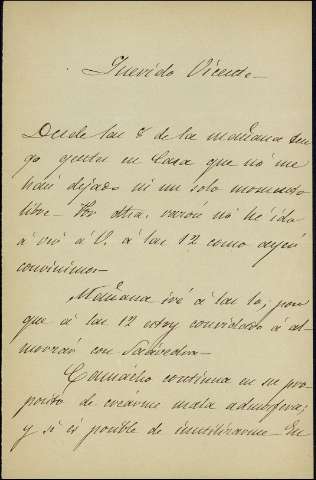 Querido Vicente
Desde las 8 de la mañana ten
go gentes en casa que nó me
han dejado ni un solo momento
libre – Por ésta razón nó hé ido
á vér á V. á las 12 como ayér
convinimos –
Mañana iré á las 10; por
que á las 12 estoy convidado á al
morzár con Saávedra –
Camácho continúa en su pro
posito de creárme mala atmosfera;
y si és posible de inutilizarme – En